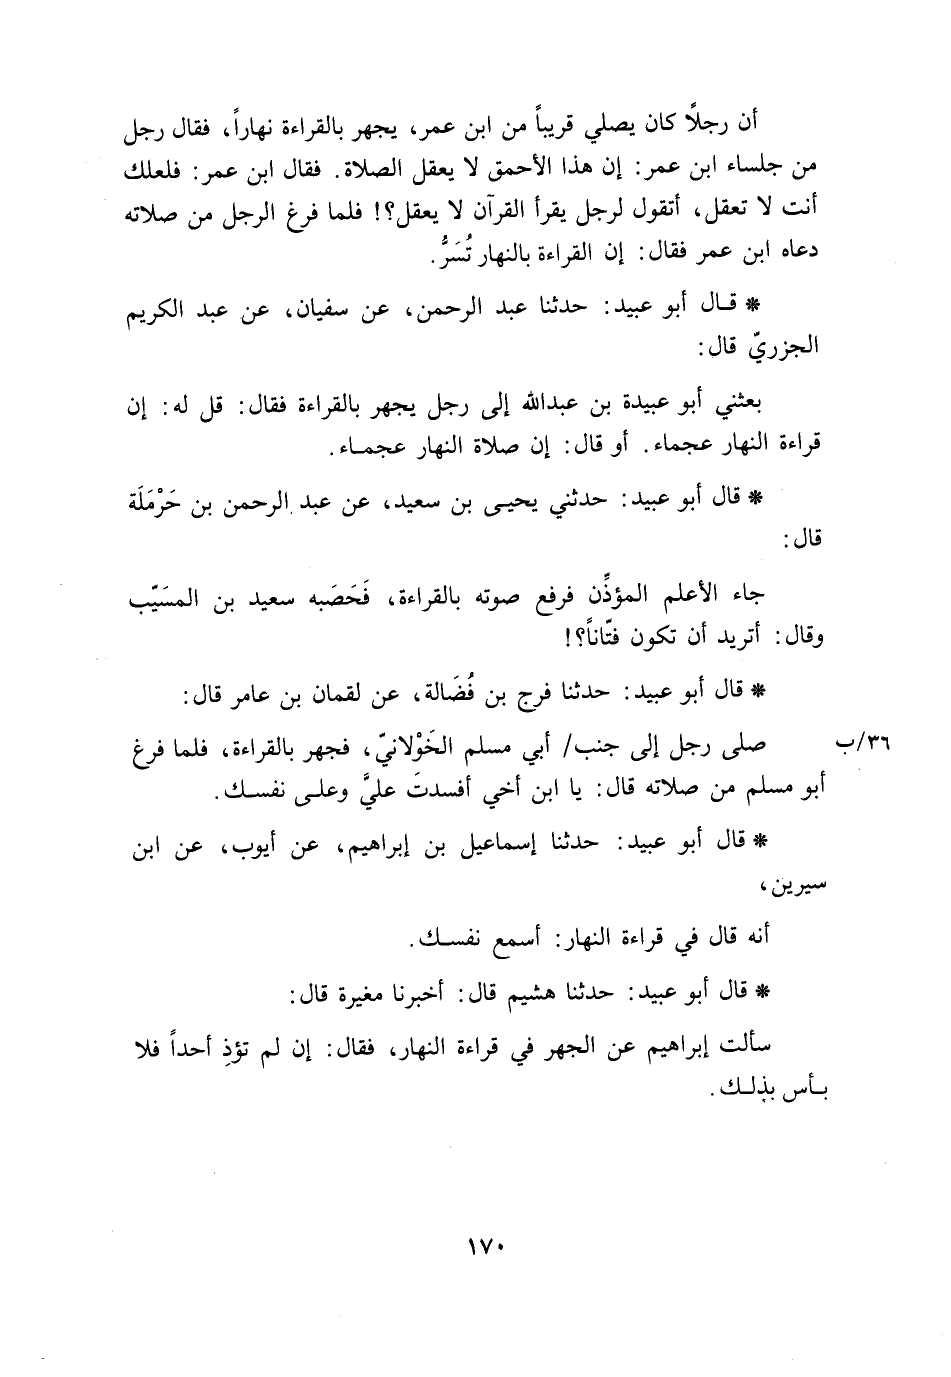 أن رجلاً كان يصلي قريباً من ابن عمر، يجهر بالقراءة نهاراً، فقال رجل
من جلساء ابن عمر: إن هذا الأحمق لا يعقل الصلاة. فقال ابن عمر: فلعلك
أنت لا تعقل، أتقول لرجل يقرأ القرآن لا يعقل؟! فلما فرغ الرجل من صلاته
دعاه ابن عمر فقال: إن القراءة بالنهار تُسَرُّ.
* قال أبو عبيد: حدثنا عبد الرحمن، عن سفيان، عن عبد الكريم
الجزريّ قال:
بعثني أبو عبيدة بن عبدالله إلى رجل يجهر بالقراءة فقال: قل له: إن
قراءة النهار عجماء. أو قال: إن صلاة النهار عجماء.
* قال أبو عبيد: حدثني يحيى بن سعيد، عن عبد الرحمن بن حَرْمَلَة
قال:
جاء الأعلم المؤذِّن فرفع صوته بالقراءة، فَحَصَبه سعيد بن المسَيّب
وقال: أتريد أن تكون فتّاناً؟!
* قال أبو عبيد: حدثنا فرج بن فُضَالة، عن لقمان بن عامر قال:
٣٦/ب صلى رجل إلى جنب/ أبي مسلم الخَوْلانيّ، فجهر بالقراءة، فلما فرغ
أبو مسلم من صلاته قال: يا ابن أخي أفسدتَ عليَّ وعلى نفسك.
* قال أبو عبيد: حدثنا إسماعيل بن إبراهيم، عن أيوب، عن ابن
سيرين،
أنه قال في قراءة النهار: أسمع نفسك.
* قال أبو عبيد: حدثنا هشيم قال: أخبرنا مغيرة قال:
سألت إبراهيم عن الجهر في قراءة النهار، فقال: إن لم تؤذِ أحداً فلا
بأس بذلك.
١٧٠